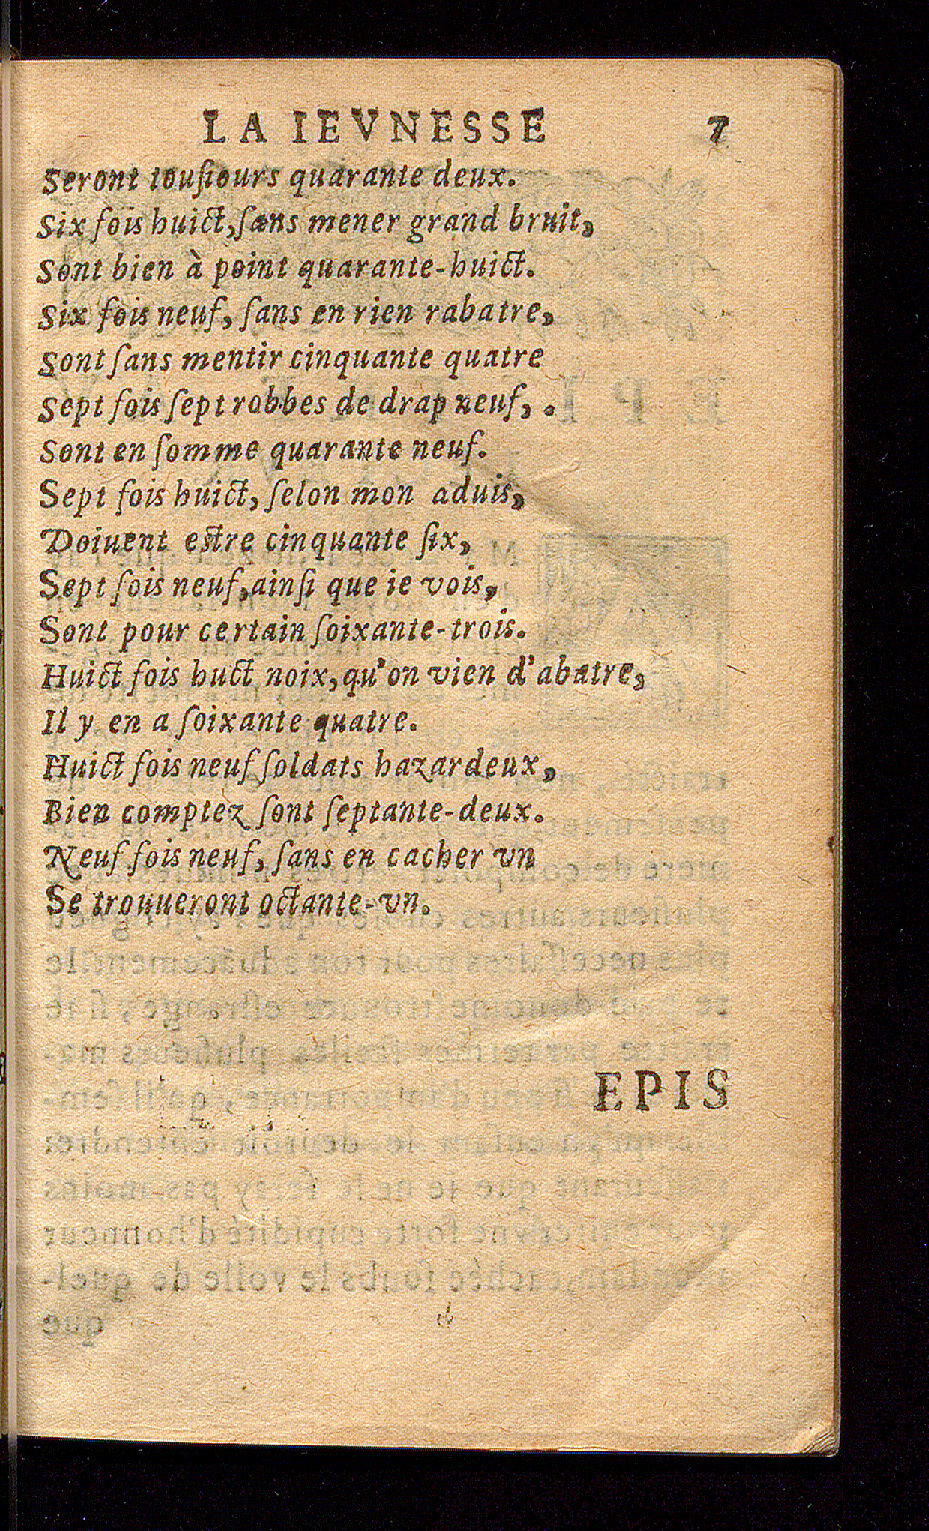 LA IEVNESSE 7
Seront touſiours quarante deux.
Six fois huict, ſans mener grand bruit,
Sont bien à point quarante-huict.
Six fois neuf, ſans en rien rabatre,
Sont ſans mentir cinquante quatre
Sept fois ſept robbes de drap neuf, .
Sont en ſomme quarante neuf.
Sept fois huict, ſelon mon aduis,
Doiuent eſtre cinquante ſix,
Sept fois neuf, ainſi que ie vois,
Sont pour certain ſoixante-trois.
Huict fois huct noix, qu'on vien d'abatre,
Il y en a ſoixante quatre.
Huict fois neuf ſoldats hazardeux,
Bien comptez ſont ſeptante-deux.
Neuf fois neuf, ſans en cacher vn
Se trouueront octante-vn.
EPIS